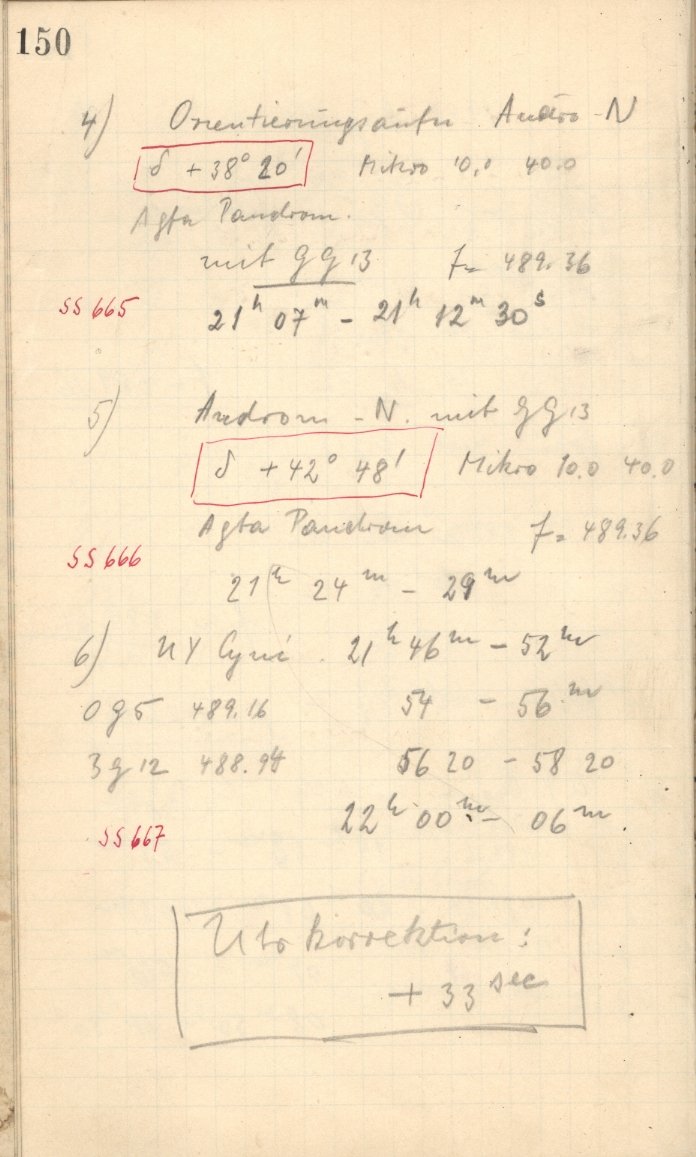 150
4) Orientierungsaufn Andro-N
δ +38° 20' Mikro 10,0 40.0
Agfa Panchrom.
mit GG13 f= 489.36
SS 665 21h 07m - 21h 12m 30s
5) Androm - N. mit GG13
δ +42° 48' Mikro 10.0 40.0
Agfa Panchrom f= 489.36
SS 666
21h 24m - 29m
6) Cygni 21h 46m - 52m
0g5 489.16 54 - 56m
3g12 488.94 56 20 - 58 20
22h 00m - 06m.
SS 667
Uhrkorrektion:
+ 33 sec